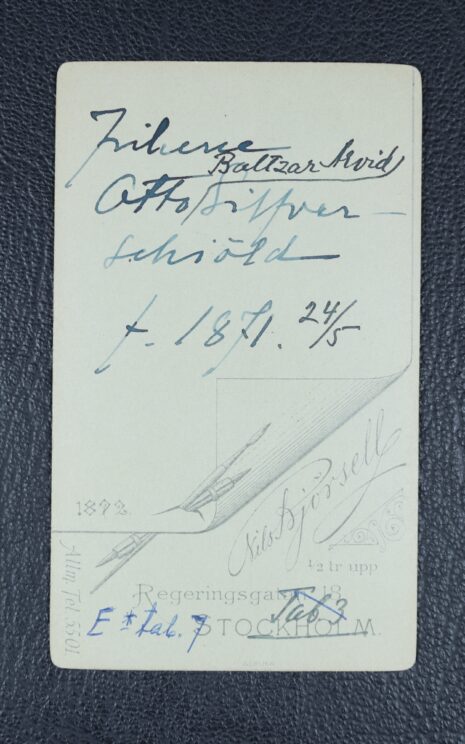 Friherre
Baltzar Arvid
Otto Silfver-
schiöld
f. 1871. 24/5
1872
Nils Björsell
½ tr upp
Allm. Tel. 5501
Regeringsgatan 18
Tab 3
E* tab. 7
STOCKHOLM.